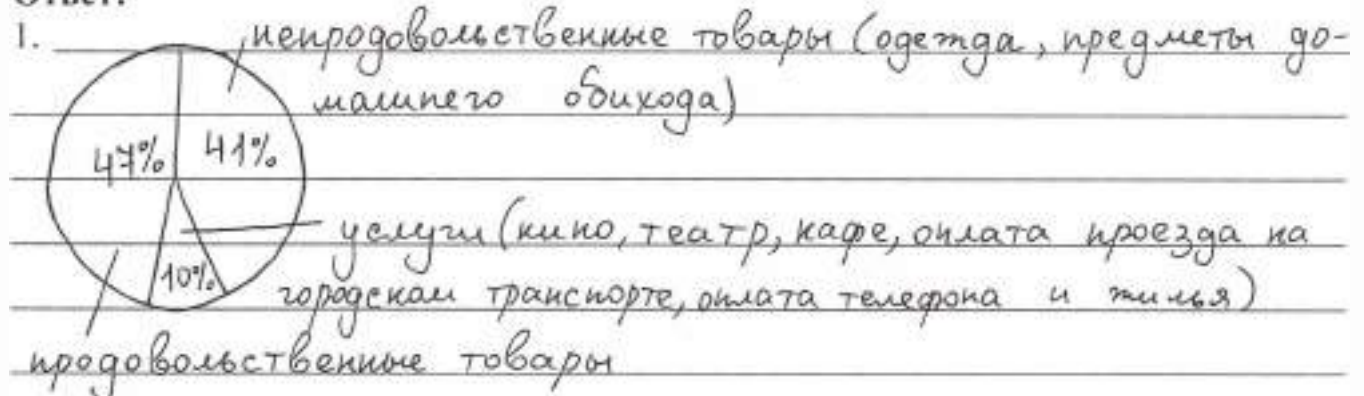 Ответ:
1. непродовольственные товары (одежда, предметы до-
машнего обихода)
47% 41%
услуги (кино, театр, кафе, оплата проезда на
10% городском транспорте, оплата телефона и жилья)
продовольственные товары